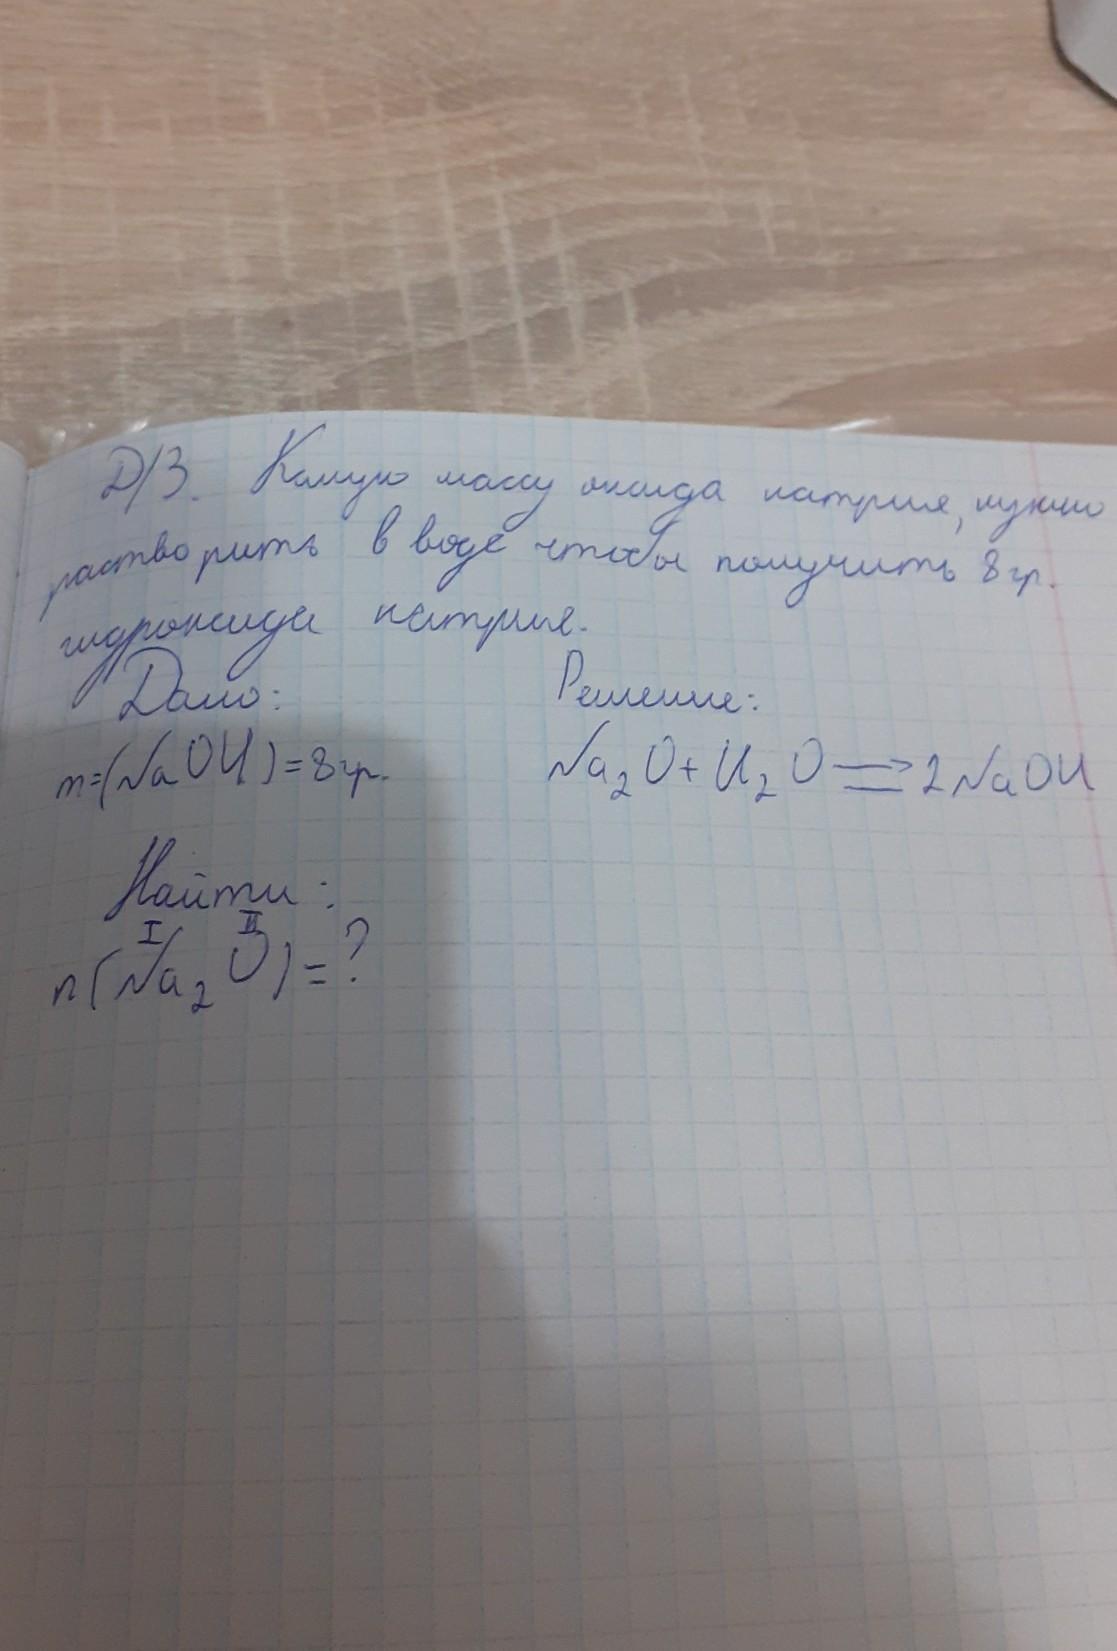 Д/З. Какую массу оксида натрия, нужно
растворить в воде чтобы получить 8 гр.
гидроксида натрия.
Дано: Решение:
m=(NaOH)=8гр. Na₂O+H₂O⇒2NaOH
Найти:
I II
n(Na₂O)=?